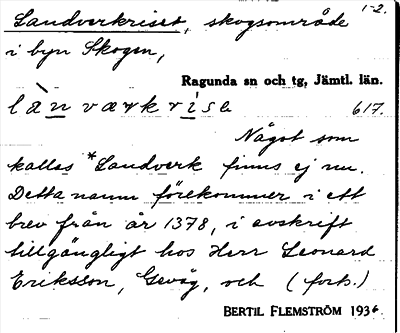 Landverkriset, skogsområde 1-2.
i byn Skogen,
Ragunda sn och tg, Jämtl. län.
là̱n værkrise 617.
Något som
kallas *Landverk finns ej nu.
Detta namn förekommer i ett
brev från år 1378, i avskrift
tillgängligt hos Herr Leonard
Eriksson, Gevåg, och (forts.)
BERTIL FLEMSTRÖM 1936.